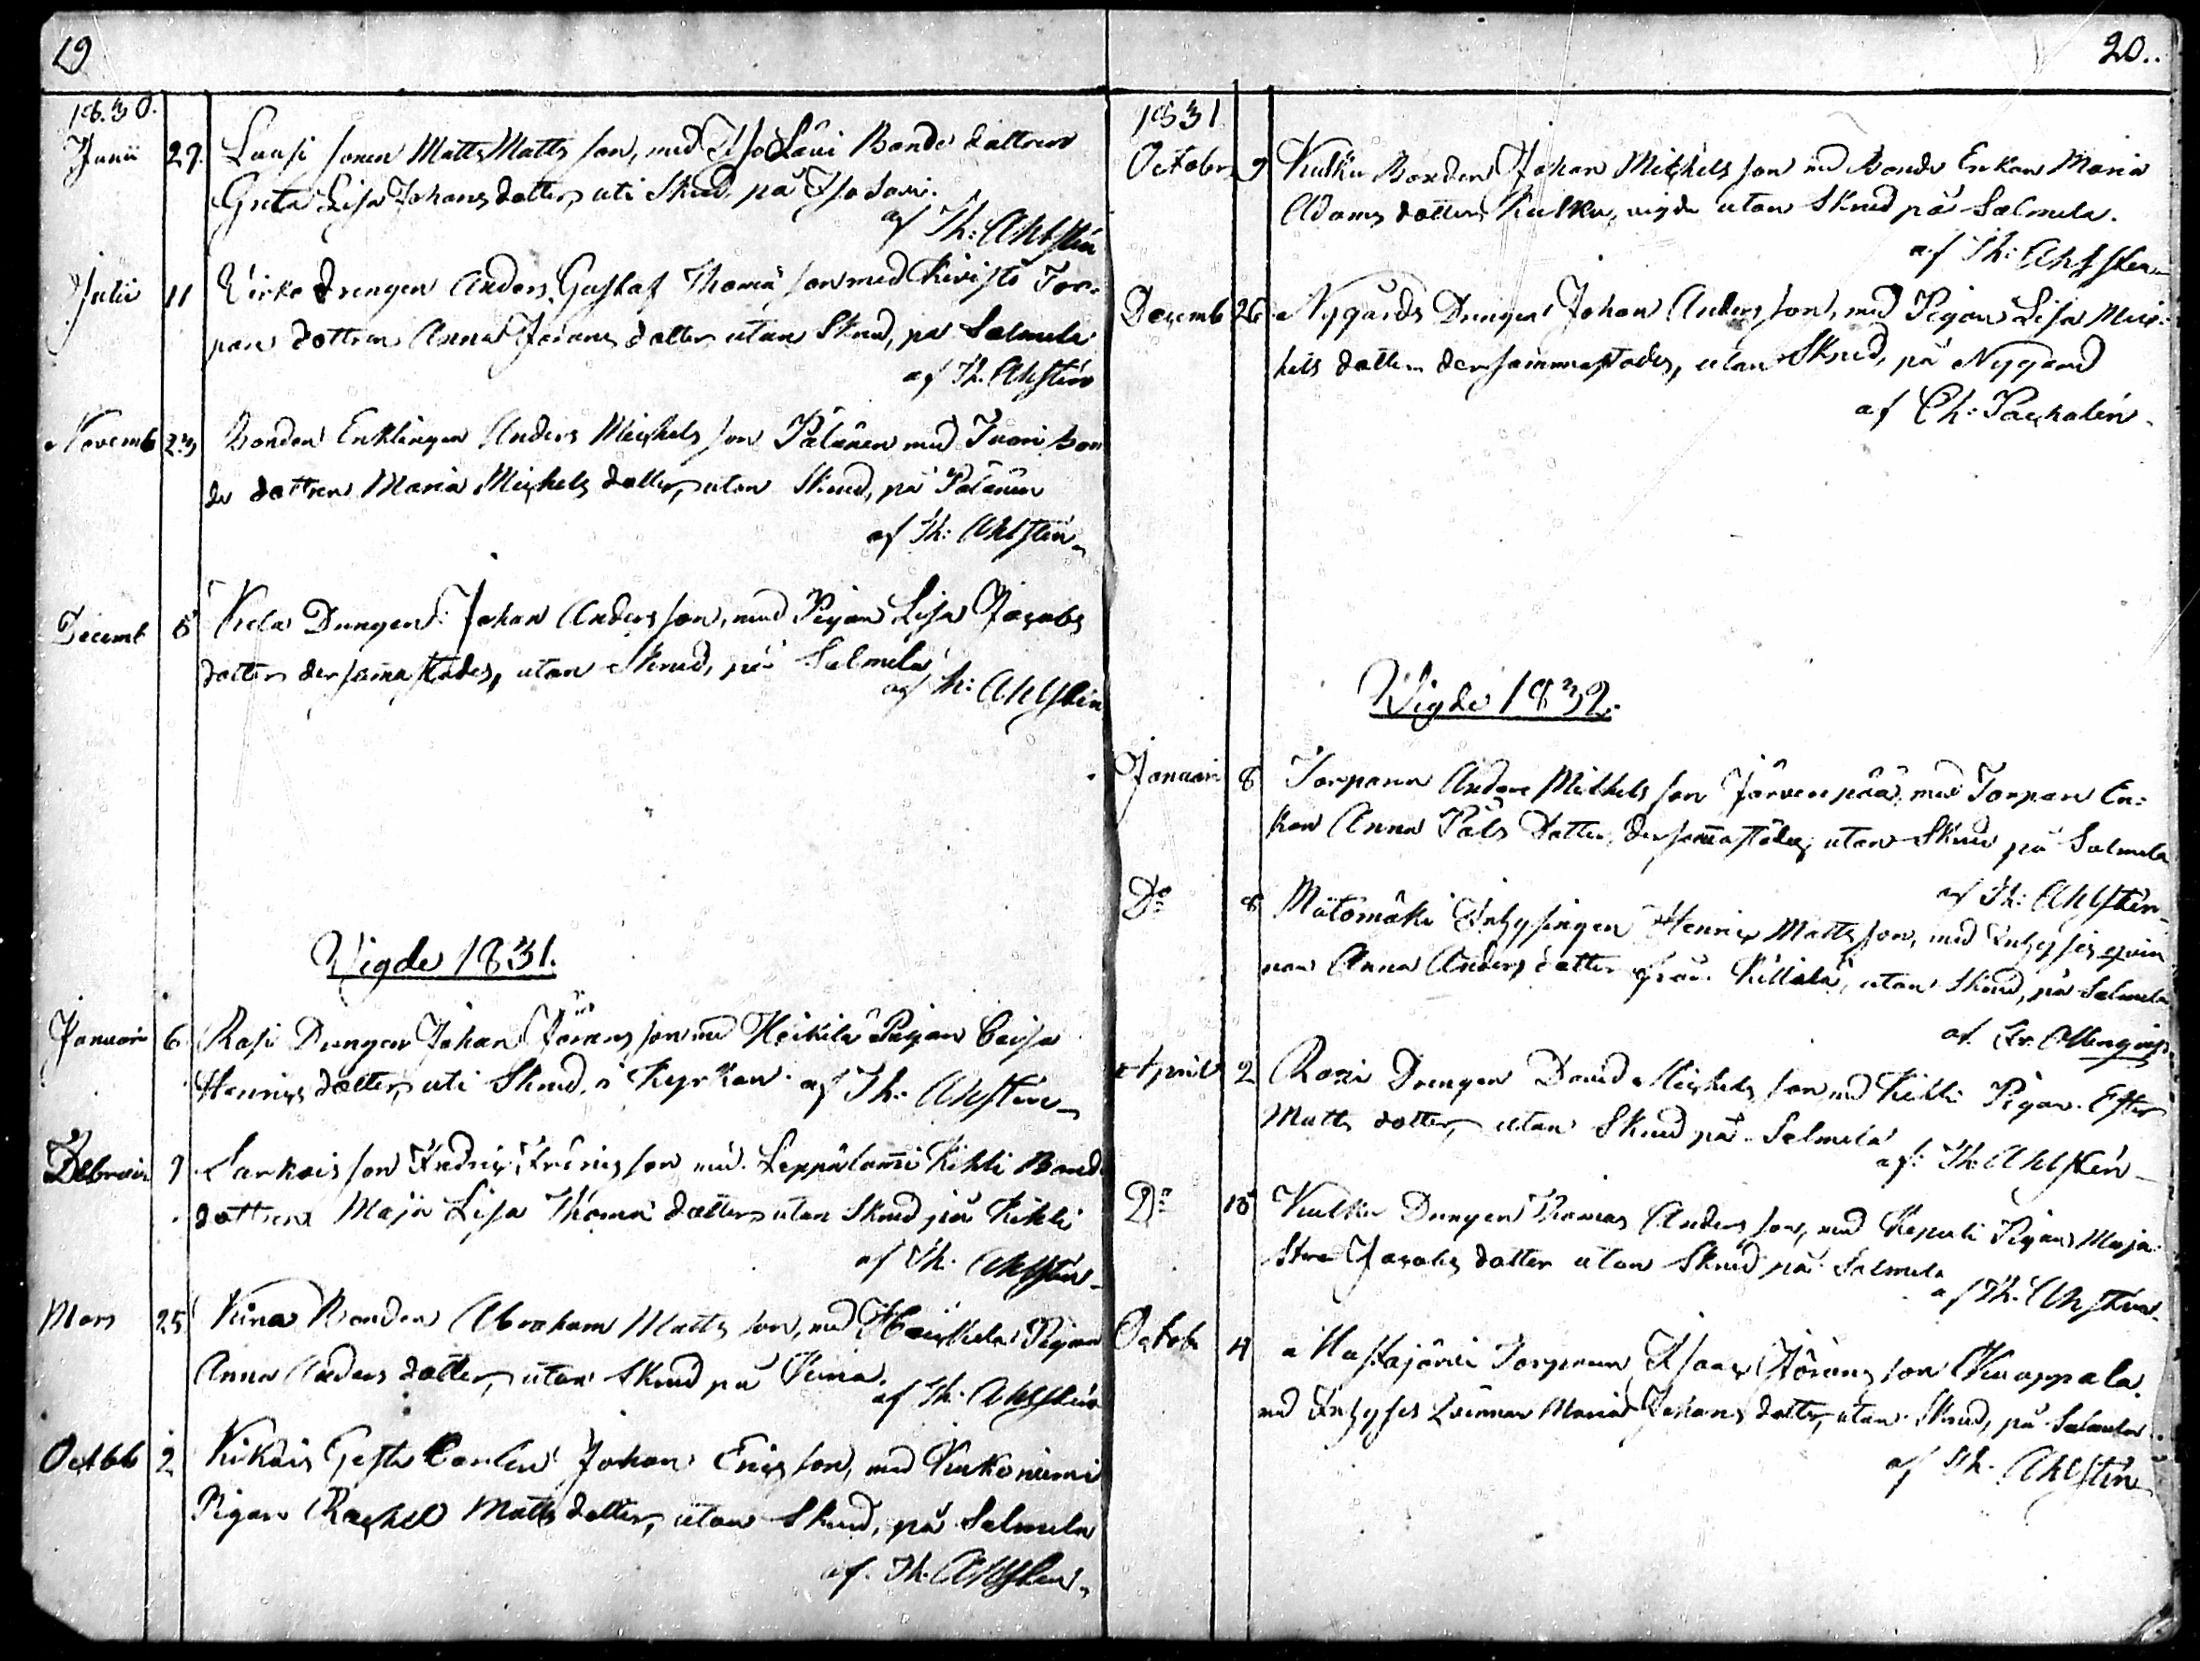 19
1830.
Junii 27. Lausi sonen Matts Matts son, med Iso Lavi Bonde dottren
Greta Lisa Johans dotter, uti Skrud, på Iso Lavi.
af Th: Ahlstén
Julii 11 Virka Drengen Anders Gustaf Thomæ son med Kivistö Tor-
pare dottren Anna Jörans dotter utan Skrud, på Salmela
af Th. Ahlstén
Novemb 23 Bonden Enklingen Anders Michels son Palanen med Inari Bon
de dottren Maria Michels dotter, utan Skrud, på Palanen
af Th: Ahlstén
Decemb 5 Drengen Johan Anders son, med Pigan Lisa Jacobs
dotter dersamastädes, utan Skrud, på Salmela
af Th: Ahlstén
Vigde 1831.
Januari 6 Rasi Drengen Johan Jörans son med Heikilä Pigan Caisa
Henrics dotter, uti Skrud, i Kyrkan af Th. Ahlstén
Febrari 9 son Fredric Fredrics son med Leppälammi Kihli Bonde
dottren Maja Lisa Thomæ dotter utan Skrud på Kihli
af Th. Ahlstén
Mars 25 Bonden Abraham Matts son, med Pigan
Anna Anders dotter, utan Skrud på
af Th. Ahlstén
Octbb 2 Johan Erics son, med Kukoniemi
Pigan Rachel Matts dotter, utan Skrud, på Salmela
af Th. Ahlstén
20..
1831
October 9 Kulku Bonden Johan Michels son med Bonde Enkan Maria
Adams dotter Kulku, vigde utan Skrud på Salmela.
af Th. Ahlstén
Decemb 26 Nygårds Drengen Johan Anders son, med Pigan Lisa Mic-
hels dotter dersammastädes, utan Skrud, på Nygård
af Ch: Paschalén
Wigde 1832.
Januari 8 Torparen Anders Michels son Järvenpää, med Torpare En-
kan Anna Påls Dotter, dersamastädes utan Skrud på Salmela
af Th: Ahlstén
Do 8 Mätömäki Inhysingen Henric Matts son, med Inhyses qvin
nan Anna Anders dotter från Killälä, utan Skrud, på Salmela
af Fr.
April 2 Rossi Drengen David Michels son med Kihli Pigan Ester
Matts dotter, utan Skrud på Salmela
af: Th. Ahlstén
Do 15 Kulku Drengen Thomas Anders son, med Pigan Maja
Stina Jacobs dotter utan Skrud på Salmela
af Th. Ahlstén
Octob. 4 Mustajärvi Torparen Isaac Jörans son Knappala
med Inhyses Qvinnan Maria Johans dotter, utan Skrud, på Salmela
af Th. Ahlstén